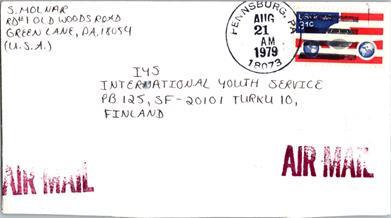 S. MOLNAR
RD#1 OLD WOODS ROAD
GREEN LANE, PA. 18054
(U.S.A.)
PENNSBURG, PA
AUG
21
AM
1979
18073
31c
IYS
INTERNATIONAL YOUTH SERVICE
PB 125, SF-20101 TURKU 10,
FINLAND
AIR MAIL
AIR MAIL